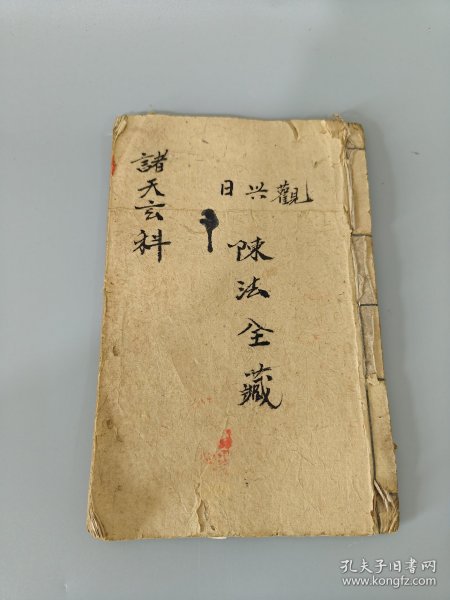 觀兴日
陳法全藏
諸天玄科
孔夫子旧书网
www.kongfz.com